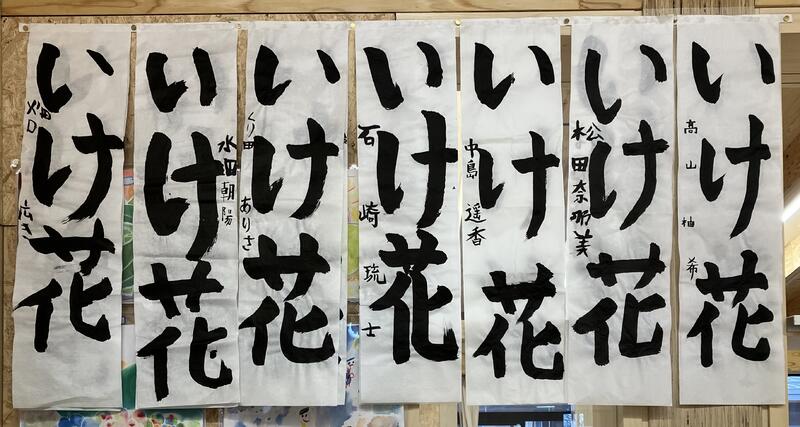 いけ花
高山柚希
いけ花
松田奈那美
いけ花
中島遥香
いけ花
石崎琉士
いけ花
くり田ありさ
いけ花
水田朝陽
いけ花
畑口